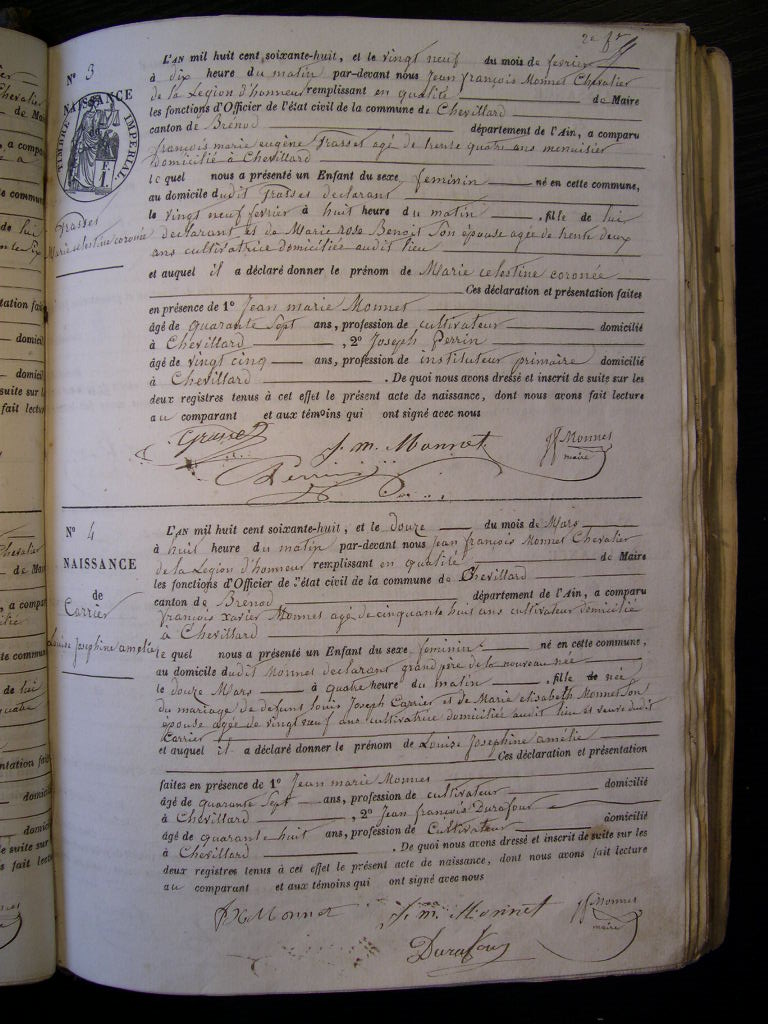 2e fr
N° 3
NAISSANCE
TIMBRE IMPERIAL
F. 1.
Grasses
Marie celestine coronée
L'AN mil huit cent soixante-huit, et le vingt neuf du mois de fevrier
à dix heure du matin par-devant nous Jean françois Monnet Chevalier
de la Legion d'honneur remplissant en qualité de Maire
les fonctions d'Officier de l'état civil de la commune de Chevillard
canton de Brénod département de l'Ain, a comparu
françois marie eugène Grasset agé de trente quatre ans menuisier
domicilié à Chevillard
le quel nous a présenté un Enfant du sexe feminin né en cette commune,
au domicile dudit Grasses declarant
le vingt neuf fevrier à huit heure du matin, fille de lui
declarant et de Marie rose Benoit son épouse agée de trente deux
ans cultivatrice domiciliée audit lieu
et auquel il a déclaré donner le prénom de Marie celestine coronée
Ces déclaration et présentation faites
en présence de 1° Jean marie Monnet
âgé de quarante sept ans, profession de cultivateur domicilié
à Chevillard, 2° Joseph Perrin
âgé de vingt cinq ans, profession de instituteur primaire domicilié
à Chevillard. De quoi nous avons dressé et inscrit de suite sur les
deux registres tenus à cet effet le présent acte de naissance, dont nous avons fait lecture
au comparant et aux témoins qui ont signé avec nous
J. m. Monnet
Monnet
maire
Perrin
N° 4
NAISSANCE
de
Carrier
Louise Josephine amelie
L'AN mil huit cent soixante-huit, et le douze du mois de Mars
à huit heure du matin par-devant nous Jean françois Monnet Chevalier
de la Legion d'honneur remplissant en qualité de Maire
les fonctions d'Officier de l'état civil de la commune de Chevillard
canton de Brenod département de l'Ain, a comparu
françois xavier Monnet agé de cinquante huit ans cultivateur domicilié
à Chevillard
le quel nous a présenté un Enfant du sexe feminin né en cette commune,
au domicile dudit Monnet declarant grand père de la nouveau née
le douze Mars à quatre heure du matin, fille de née
du mariage de defunt louis Joseph Carrier et de Marie elisabeth Monnet son
épouse agée de vingt neuf ans cultivatrice domiciliée audit lieu et veuve dudit
Carrier
et auquel il a déclaré donner le prénom de Louise Josephine amélie
Ces déclaration et présentation
faites en présence de 1° Jean marie Monnet
âgé de quarante sept ans, profession de cultivateur domicilié
à Chevillard, 2° Jean françois Durafour
âgé de quarante huit ans, profession de Cultivateur domicilié
à Chevillard. De quoi nous avons dressé et inscrit de suite sur les
deux registres tenus à cet effet le présent acte de naissance, dont nous avons fait lecture
au comparant et aux témoins qui ont signé avec nous
fx Monnet
J. m. Monnet
Monnet
maire
Durafour